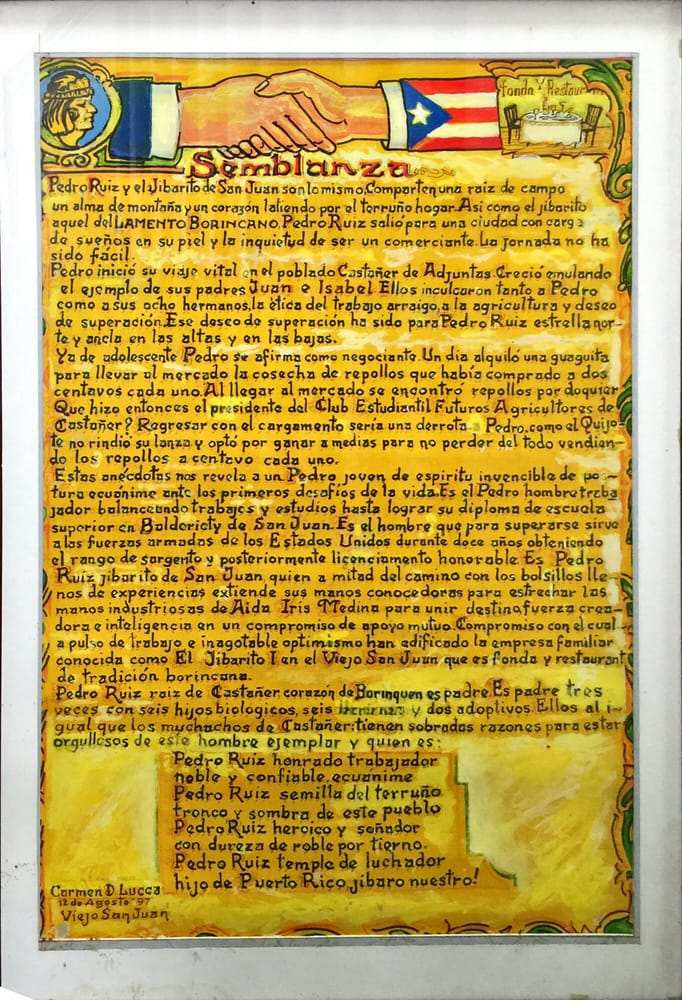 Fonda Y Restaurante
Semblanza
Pedro Ruiz y el Jibarito de San Juan son lo mismo. Comparten una raiz de campo
un alma de montaña y un corazón latiendo por el terruño hogar. Asi como el jibarito
aquel del LAMENTO BORINCANO, Pedro Ruiz salió para una ciudad con carga
de sueños en su piel y la inquietud de ser un comerciante. La jornada no ha
sido fácil.
Pedro inició su viaje vital en el poblado Castañer de Adjuntas. Creció emulando
el ejemplo de sus padres Juan e Isabel. Ellos inculcaron tanto a Pedro
como a sus ocho hermanos, la ética del trabajo arraigo, a la agricultura y deseo
de superación. Ese deseo de superación ha sido para Pedro Ruiz estrella nor-
te y ancla en las altas y en las bajas.
Ya de adolescente Pedro se afirma como negociante. Un dia alquiló una guaguita
para llevar al mercado la cosecha de repollos que había comprado a dos
centavos cada uno. Al llegar al mercado se encontró repollos por doquier
Que hizo entonces el presidente del Club Estudiantil Futuros Agricultores de
Castañer? Regresar con el cargamento sería una derrota. Pedro, como el Quijo-
te no rindió su lanza y optó por ganar a medias para no perder del todo vendien-
do los repollos a centavo cada uno.
Estas anécdotas nos revela a un Pedro joven de espiritu invencible de pos-
tura ecuánime ante los primeros desafíos de la vida. Es el Pedro hombre traba
jador balanceando trabajos y estudios hasta lograr su diploma de escuela
superior en Baldericty de San Juan. Es el hombre que para superarse sirve
a las fuerzas armadas de los Estados Unidos durante doce años obteniendo
el rango de sargento y posteriormente licenciamento honorable. Es Pedro
Ruiz jibarito de San Juan, quien a mitad del camino con los bolsillos lle-
nos de experiencias extiende sus manos conocedoras para estrechar las
manos industriosas de Aida Iris Medina para unir destino, fuerza crea-
dora e inteligencia en un compromiso de apoyo mutuo. Compromiso con el cual
a pulso de trabajo e inagotable optimismo han edificado la empresa familiar
conocida como El Jibarito I en el Viejo San Juan que es fonda y restaurant
de tradición borincana.
Pedro Ruiz raiz de Castañer corazón de Borinquen es padre. Es padre tres
veces con seis hijos biologicos, seis y dos adoptivos. Ellos al i-
gual que los muchachos de Castañer, tienen sobradas razones para estar
orgullosos de este hombre ejemplar y quien es:
Pedro Ruiz honrado trabajador
noble y confiable, ecuánime
Pedro Ruiz semilla del terruño
tronco y sombra de este pueblo
Pedro Ruiz heroico y soñador
con dureza de roble por tierno.
Pedro Ruiz temple de luchador
hijo de Puerto Rico, jíbaro nuestro!
Carmen D. Lucca
12 de Agosto 97
Viejo San Juan